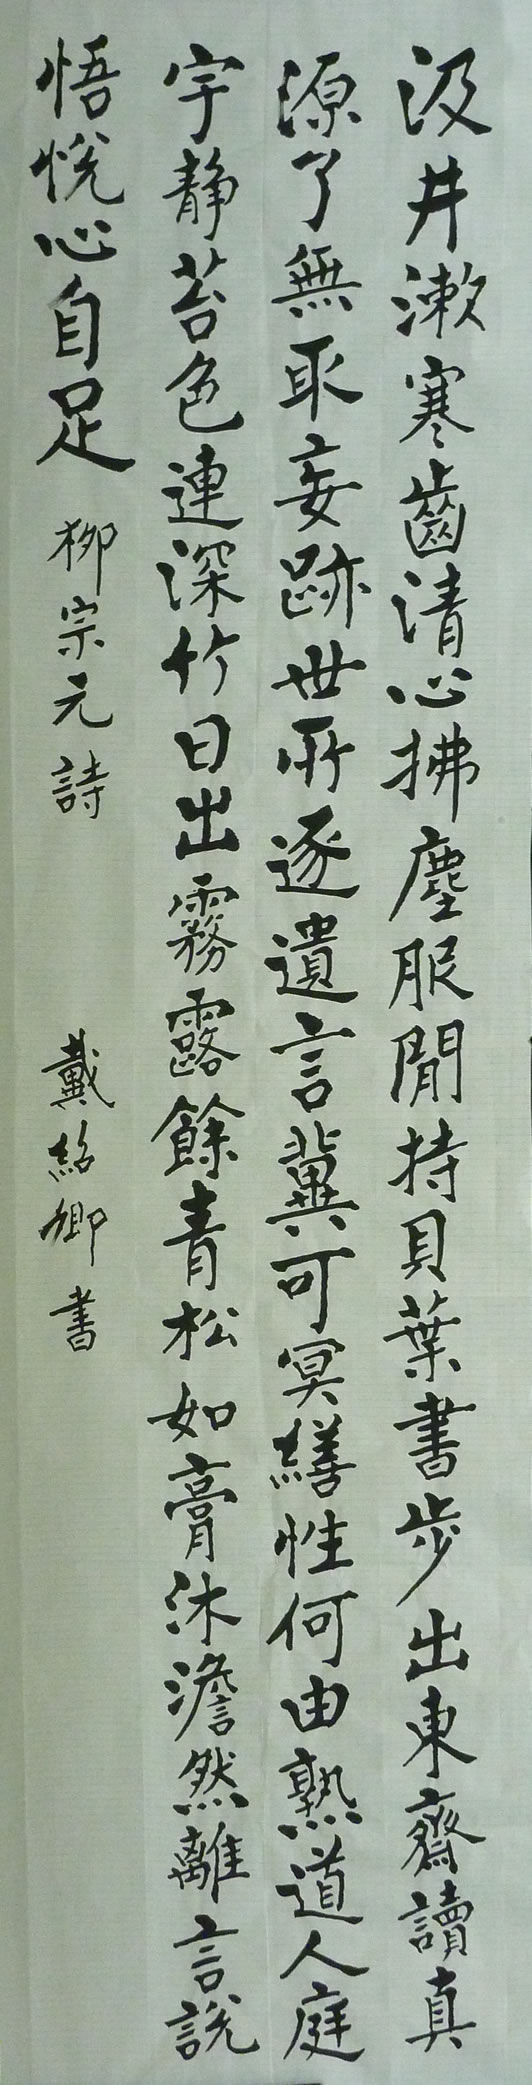 汲井漱寒齒清心拂塵服閒持貝葉書步出東齋讀真
源了無取妄跡世所逐遺言冀可冥繕性何由熟道人庭
宇靜苔色連深竹日出霧露餘青松如膏沐澹然離言說
悟悅心自足
柳宗元詩
戴紹卿書